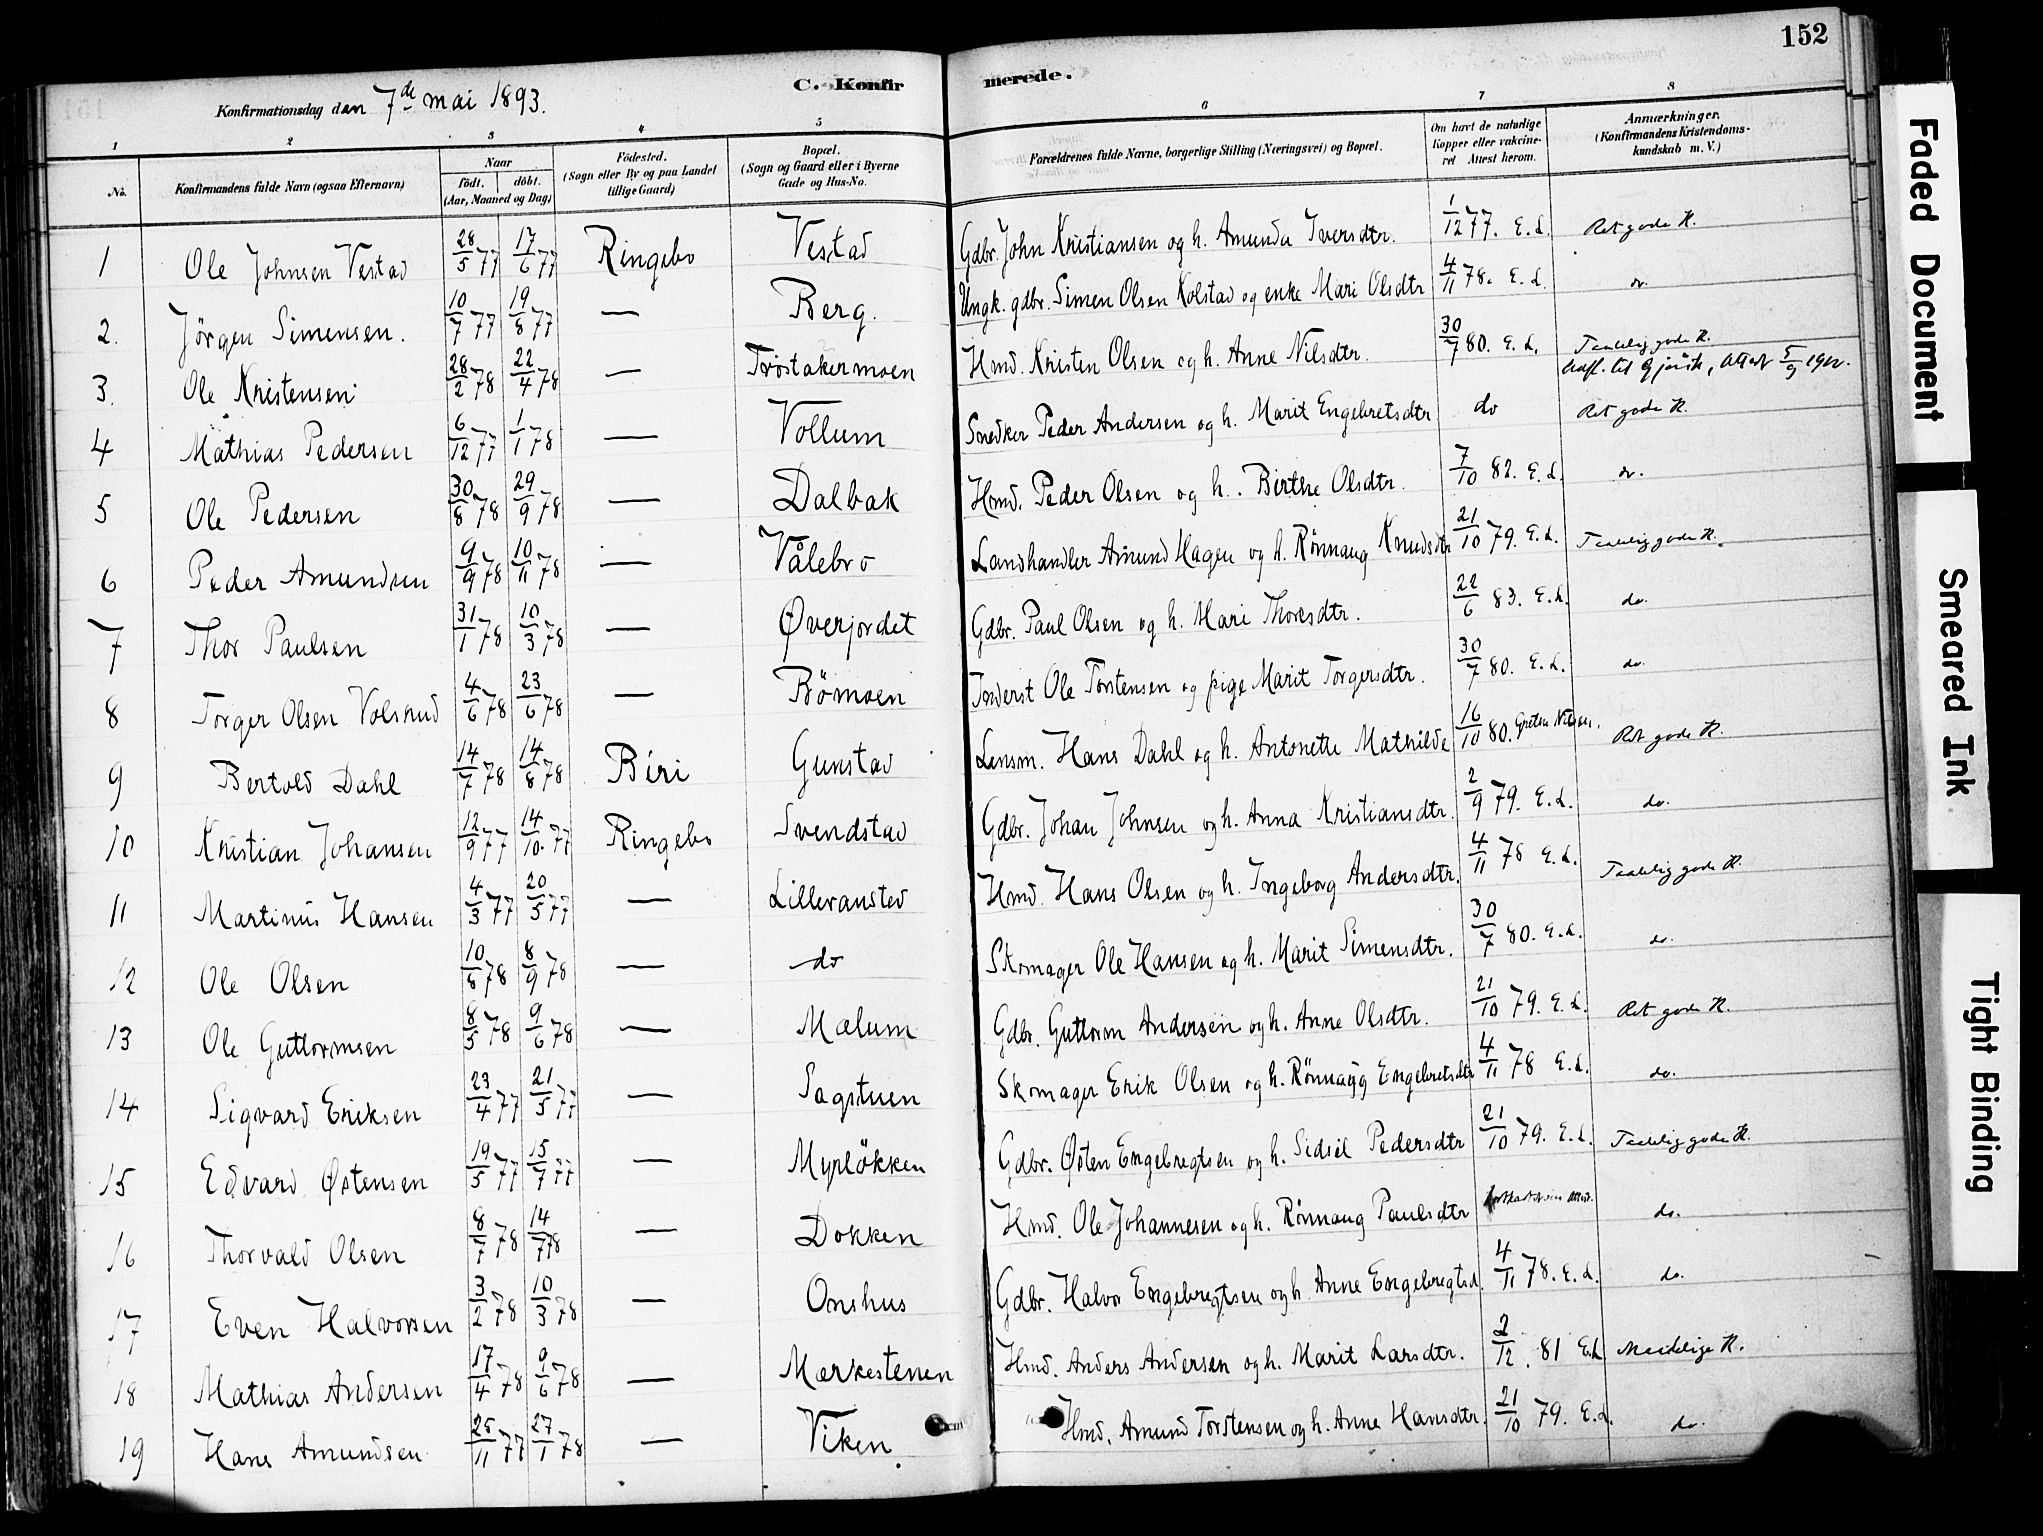 152
C. Konfirmerede.
Konfirmationsdag den 7de mai 1893.
1 2 3 4 5 6 7 8
No. Konfirmandens fulde Navn (ogsaa Efternavn) Naar født. døbt. (Aar, Maaned og Dag) Fødested. (Sogn eller By og paa Landet tillige Gaard) Bopæl. (Sogn og Gaard eller i Byerne Gade og Hus-No. Forældrenes fulde Navne, borgerlige Stilling (Næringsvei) og Bopæl. Om havt de naturlige Kopper eller vakcineret Attest herom. Anmærkninger. (Konfirmandens Kristendomskundskab m. V.)
1 Ole Johnsen Vestad 28/5 77 17/6 77 Ringebo Vestad Gdbr. John Kristiansen og h. Amunda Iversdtr. 1/12 77. E. L. Ret gode K.
2. Jörgen Simensen. 10/7 77 19/8 77 — Berg. Ungk. gdbr. Simen Olsen Kolstad og enke Mari Olsdtr 4/11 78. E. L. do.
3. Ole Kristensen 28/2 78 22/4 78 — Trøstakermoen Hmd. Kristen Olsen og h. Anne Nilsdtr. 30/7 80. E. L. Taalelig gode K.
til Gjøvik, Attest 5/9 1912.
4 Mathias Pedersen 6/12 77 1/1 78 — Vollum Snedker Peder Andersen og h. Marit Engebretsdtr do Ret gode K.
5 Ole Pedersen 30/8 78 29/9 78 — Dalbak Hmd. Peder Olsen og h. Birthe Olsdtr. 7/10 82. E. L. do.
6 Peder Amundsen 9/9 78 10/11 78 — Vålebro Landhandler Amund Hagen og h. Rönnaug Knudsdtr 21/10 79. E. L. Taalelig gode K.
7 Thor Paulsen 31/1 78 10/3 78 — Øverjordet Gdbr. Paul Olsen og h. Mari Thoresdtr. 22/6 83. E. L. do.
8 Torger Olsen Volsrud 4/6 78 23/6 78 — Bømoen Inderst Ole Torstensen og pige Marit Torgersdtr. 30/7 80. E. L. do.
9 Bertold Dahl 14/7 78 14/8 78 Biri Gunstad Lensm. Hans Dahl og h. Antonette Mathilde 16/10 80. Grethe Nilsen. Ret gode K.
10 Kristian Johansen 12/9 77 14/10. 77 Ringebo Svendstad Gdbr. Johan Johnsen og h. Anna Kristiansdtr. 2/9 79. E. L. do.
11 Martinus Hansen 4/3 77 20/5 77 — Lillevansted Hmd. Hans Olsen og h. Ingeborg Andersdtr. 4/11 78 E. L. Taalelig gode K.
12 Ole Olsen 10/8 78 8/9 78 — do Skomager Ole Hansen og h. Marit Simensdtr. 30/7 80. E. L. do.
13 Ole Guttormsen 8/5 78 9/6 78 — Mælum Gdbr. Guttorm Andersen og h. Anne Olsdtr. 21/10 79. E. L. Ret gode K.
14 Sigvard Eriksen 23/4 77 21/5 77 — Sagstuen Skomager Erik Olsen og h. Rönnaug Engebretsdtr 4/11 78 E. L. do.
15 Edvard Østensen 19/5 77 15/7 77 — Myrløkken Gdbr. Østen Engebregtsen og h. Sidsel Pedersdtr 21/10 79. E. L. Taalelig gode K.
16 Thorvald Olsen 8/7 78 14/7 78 — Dokken Hmd. Ole Johannesen og h. Rönnaug Paulsdtr do.
17 Even Halvorsen 3/2 78 10/3 78 — Onshus Gdbr. Halvor Engebregtsen og h. Anne Engebregtsd. 4/11 78. E. L. do.
18 Mathias Andersen 17/4 78 9/6 78 — Mærkestenen Hmd. Anders Andersen og h. Marit Larsdtr. 2/12. 81 E. L. Maadelige K.
19 Hans Amundsen 25/11 77 27/1 78 — Viken Hmd. Amund Torstensen og h. Anne Hansdtr. 21/10 79. E. L. do.
Faded Document
Smeared Ink
Tight Binding